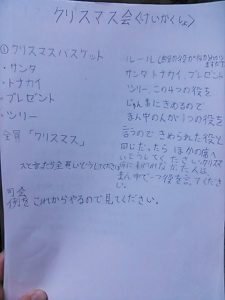 クリスマス会〈けいかくしょ〉
①クリスマスバスケット
・サンタ
・トナカイ
・プレゼント
・ツリー
全員「クリスマス」
ルール
サンタ、トナカイ、プレゼント
ツリー、この4つの役を
じゅん番にきめるので
まん中の人が1つの役を
言うので きめられた役と
同じだったら ほかの席へ
いどうしてください。クリスマ
スと言ったら全員いどうしてください。
まん中で一つ役を言ってくださ
い。
司会
例を これからやるので見てください。